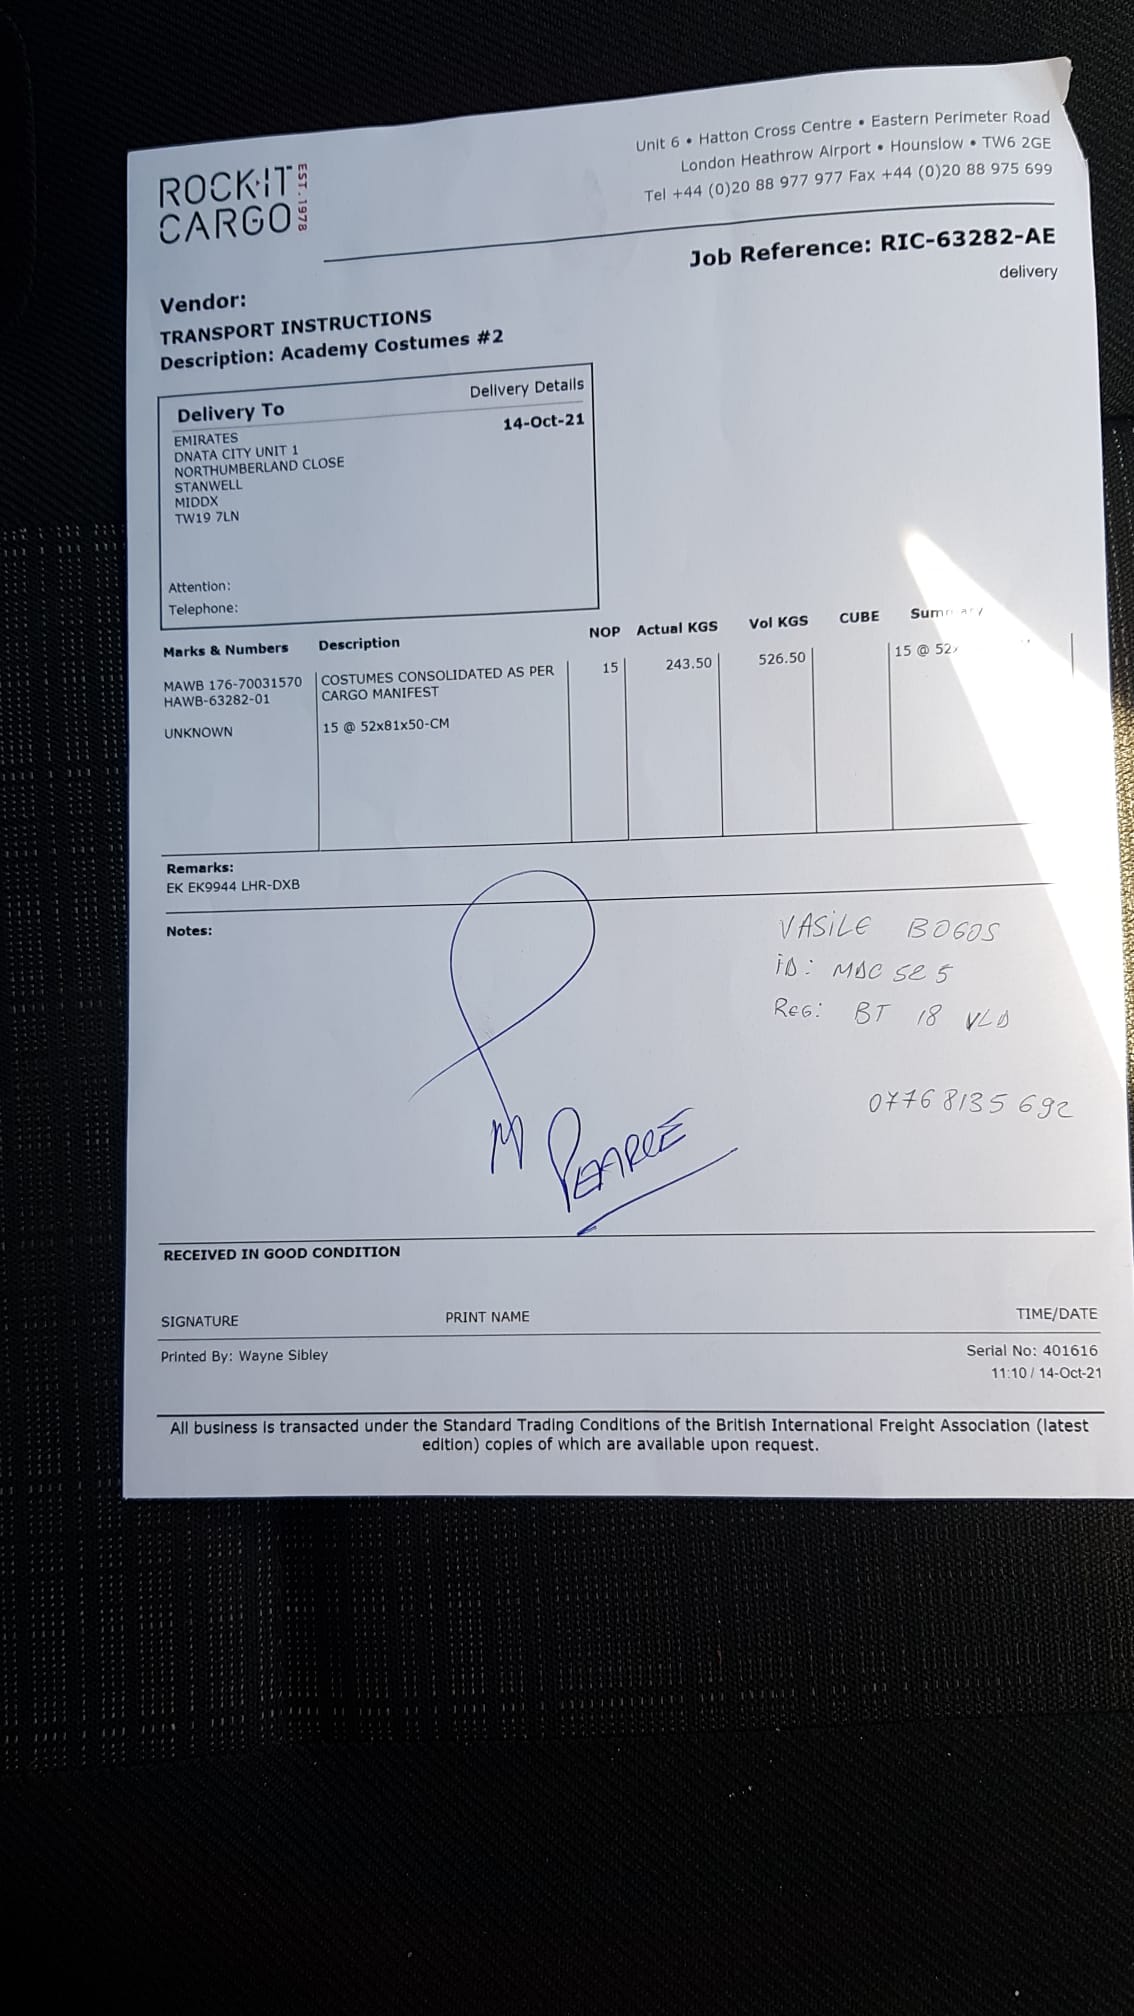 ROCK-IT
CARGO
EST. 1978
Unit 6 • Hatton Cross Centre • Eastern Perimeter Road
London Heathrow Airport • Hounslow • TW6 2GE
Tel +44 (0)20 88 977 977 Fax +44 (0)20 88 975 699
Job Reference: RIC-63282-AE
delivery
Vendor:
TRANSPORT INSTRUCTIONS
Description: Academy Costumes #2
Delivery To Delivery Details
14-Oct-21
EMIRATES
DNATA CITY UNIT 1
NORTHUMBERLAND CLOSE
STANWELL
MIDDX
TW19 7LN
Attention:
Telephone:
Marks & Numbers Description NOP Actual KGS Vol KGS CUBE Summary
MAWB 176-70031570 COSTUMES CONSOLIDATED AS PER 15 243.50 526.50 15 @ 52x
HAWB-63282-01 CARGO MANIFEST
UNKNOWN 15 @ 52x81x50-CM
Remarks:
EK EK9944 LHR-DXB
Notes:
VASILE BOGOS
ID:
REG: BT 18 VLD
07768135692
M PEARCE
RECEIVED IN GOOD CONDITION
SIGNATURE PRINT NAME TIME/DATE
Printed By: Wayne Sibley Serial No: 401616
11:10 / 14-Oct-21
All business is transacted under the Standard Trading Conditions of the British International Freight Association (latest
edition) copies of which are available upon request.